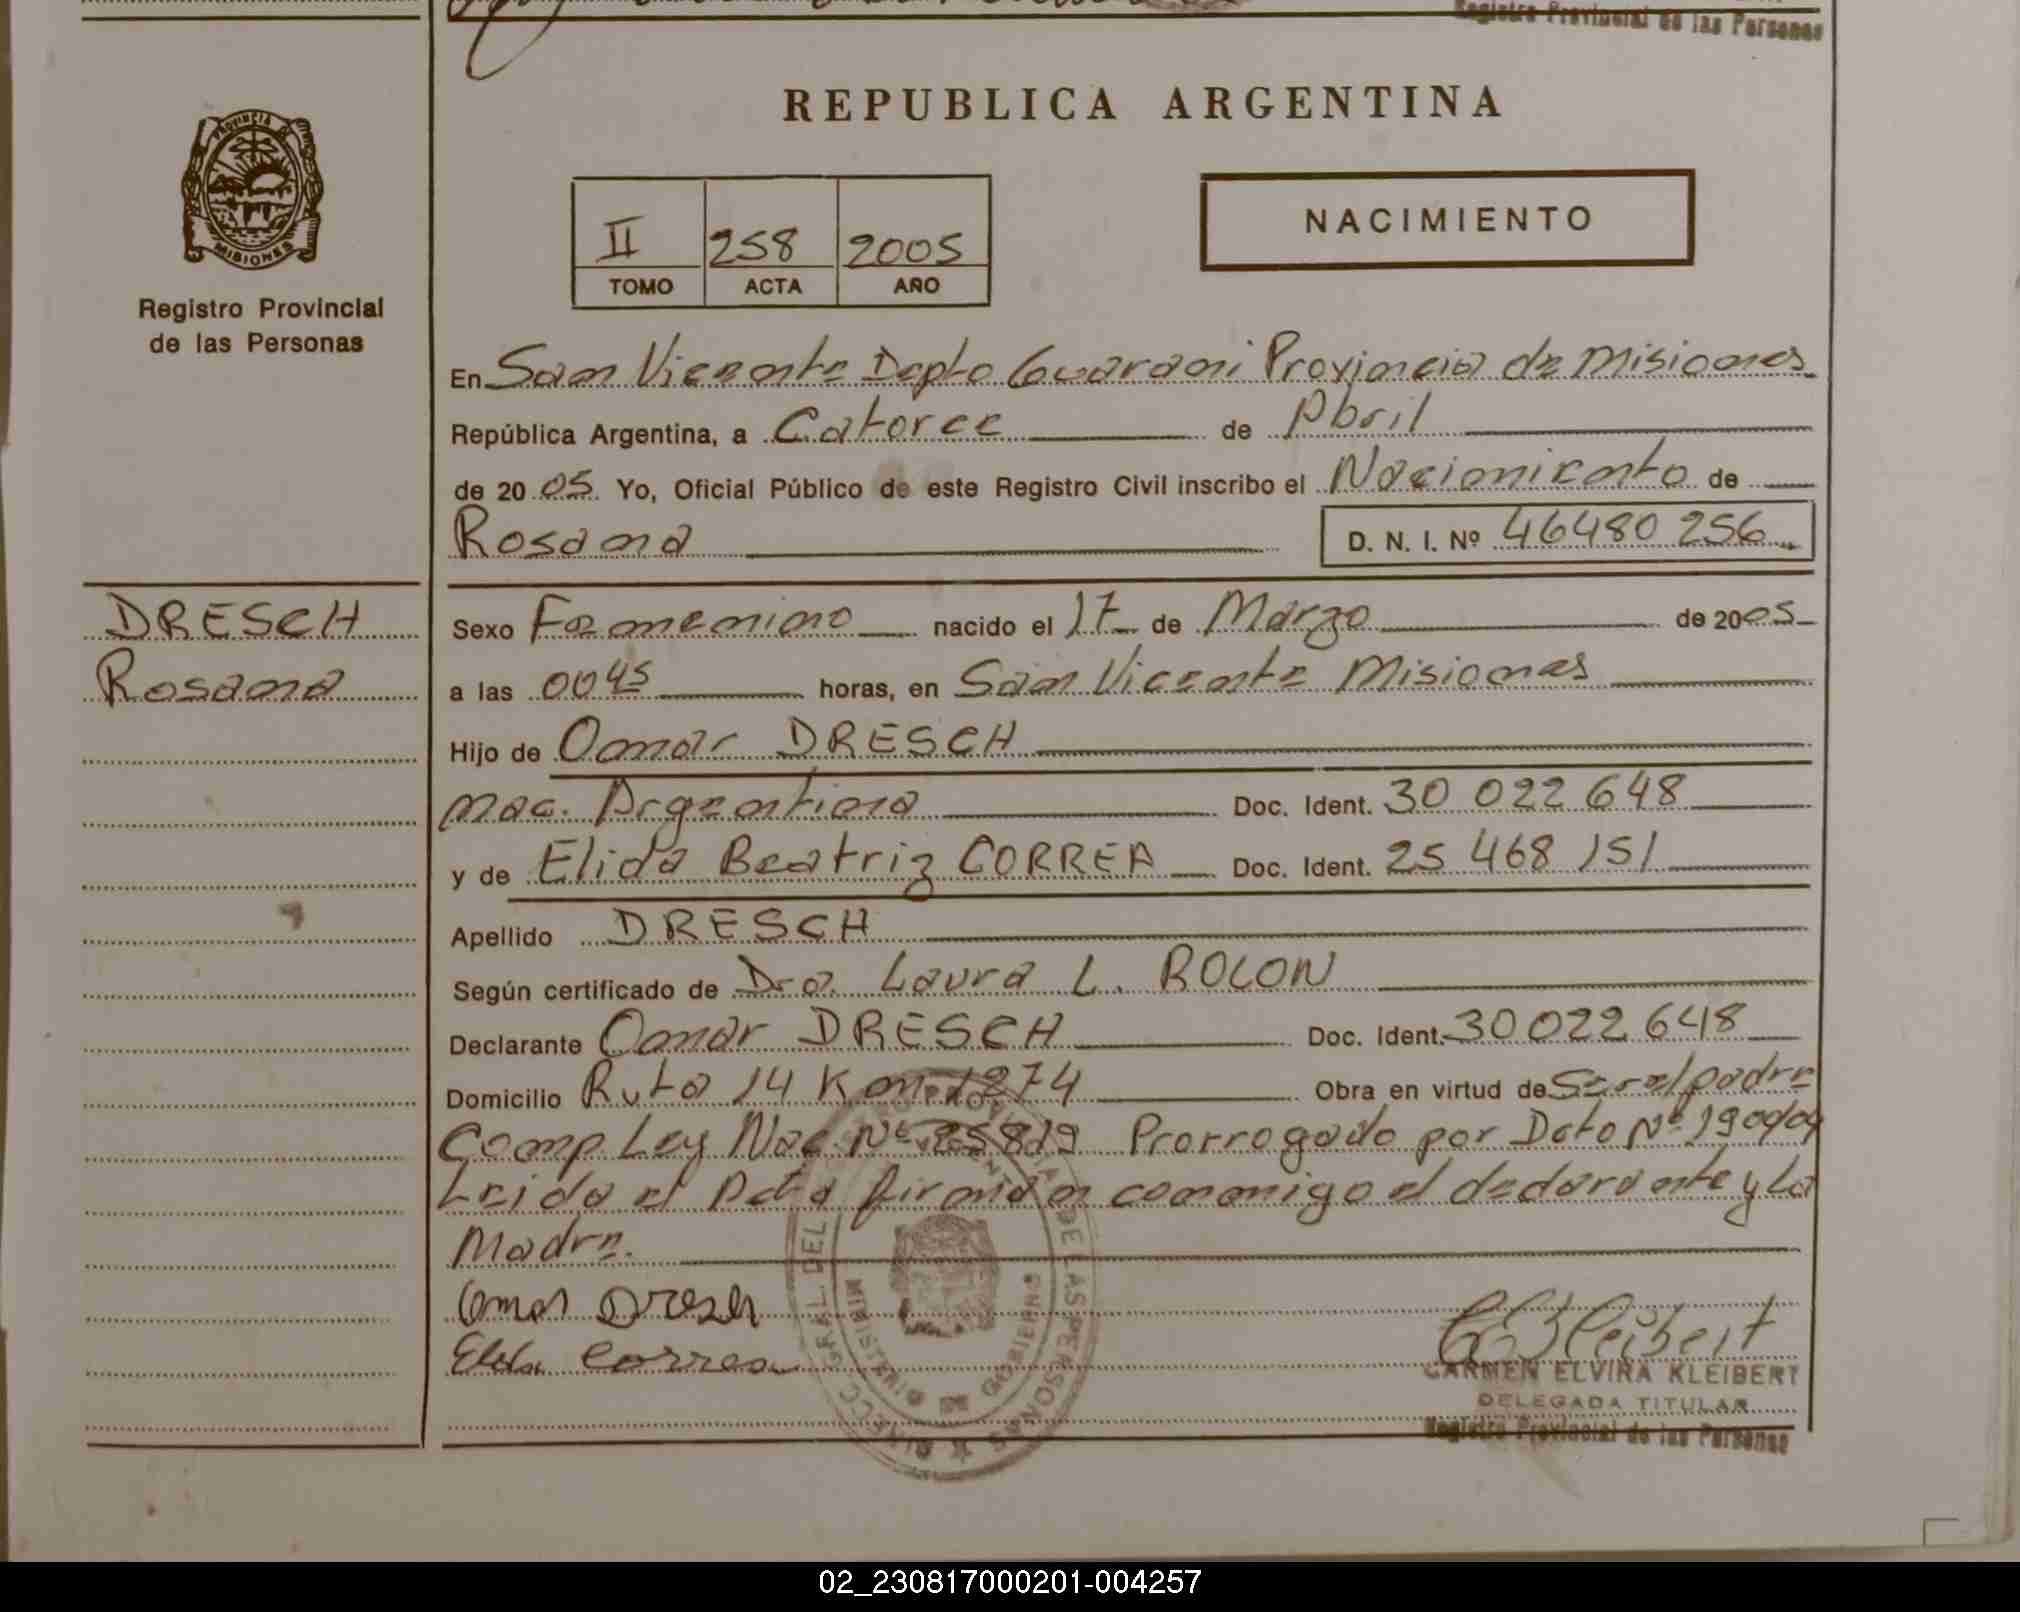 Registro Provincial de las Personas
REPUBLICA ARGENTINA
PROVINCIA DE
MISIONES
Registro Provincial
de las Personas
II 258 2005
TOMO ACTA AÑO
NACIMIENTO
En San Vicente Depto Guarani Provincia de Misiones
República Argentina, a Catorce de Abril
de 2005. Yo, Oficial Público de este Registro Civil inscribo el Nacimiento de
Rosana D. N. I. Nº 46480 256
DRESCH
Rosana
Sexo Femenino nacido el 17 de Marzo de 2005
a las 0045 horas, en San Vicente Misiones
Hijo de Omar DRESCH
nac. Argentina Doc. Ident. 30 022 648
y de Elida Beatriz CORREA Doc. Ident. 25 468 151
Apellido DRESCH
Según certificado de Dra. Laura L. ROLON
Declarante Omar DRESCH Doc. Ident. 30 022 648
Domicilio Ruta 14 Km 1274 Obra en virtud de Ser el padre
Comp Ley Nac. Nº 25819 Prorrogado por Dcto Nº
Leida el Acta firman conmigo el declarante y La
Madre.
Omar Dresch
Elida Correa
CARMEN ELVIRA KLEIBERT
DELEGADA TITULAR
Registro Provincial de las Personas
02_230817000201-004257